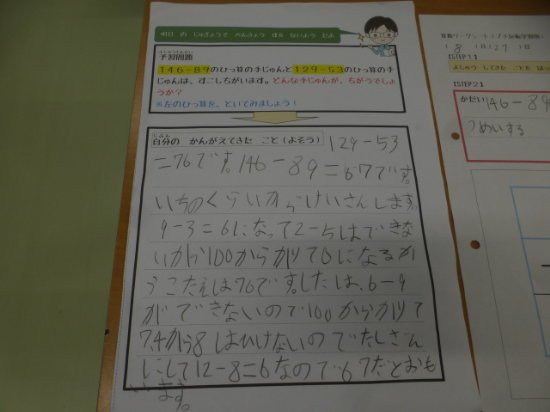 明日 の じゅぎょうで べんきょう する ないよう だよ
予習問題
146-89のひっ算の手じゅんと129-53のひっ算の手
じゅんは、すこしちがいます。どんな手じゅんが、ちがうでしょ
うか?
※左のひっ算を、といてみましょう!
自分の かんがえてきた こと(よそう) 129-53
=76です。146-89=67です。
いちのくらいからけいさんします。
9-3=6になって2-5はできな
いから100からかりて
こたえは76です。したは、6-9
ができないので100からかりて
7.4から8はひけないのでたしざん
にして12-8=6なので67だとおも
います。
8月27日
【STEP1】
【STEP2】
かだい 146-89
つめいする